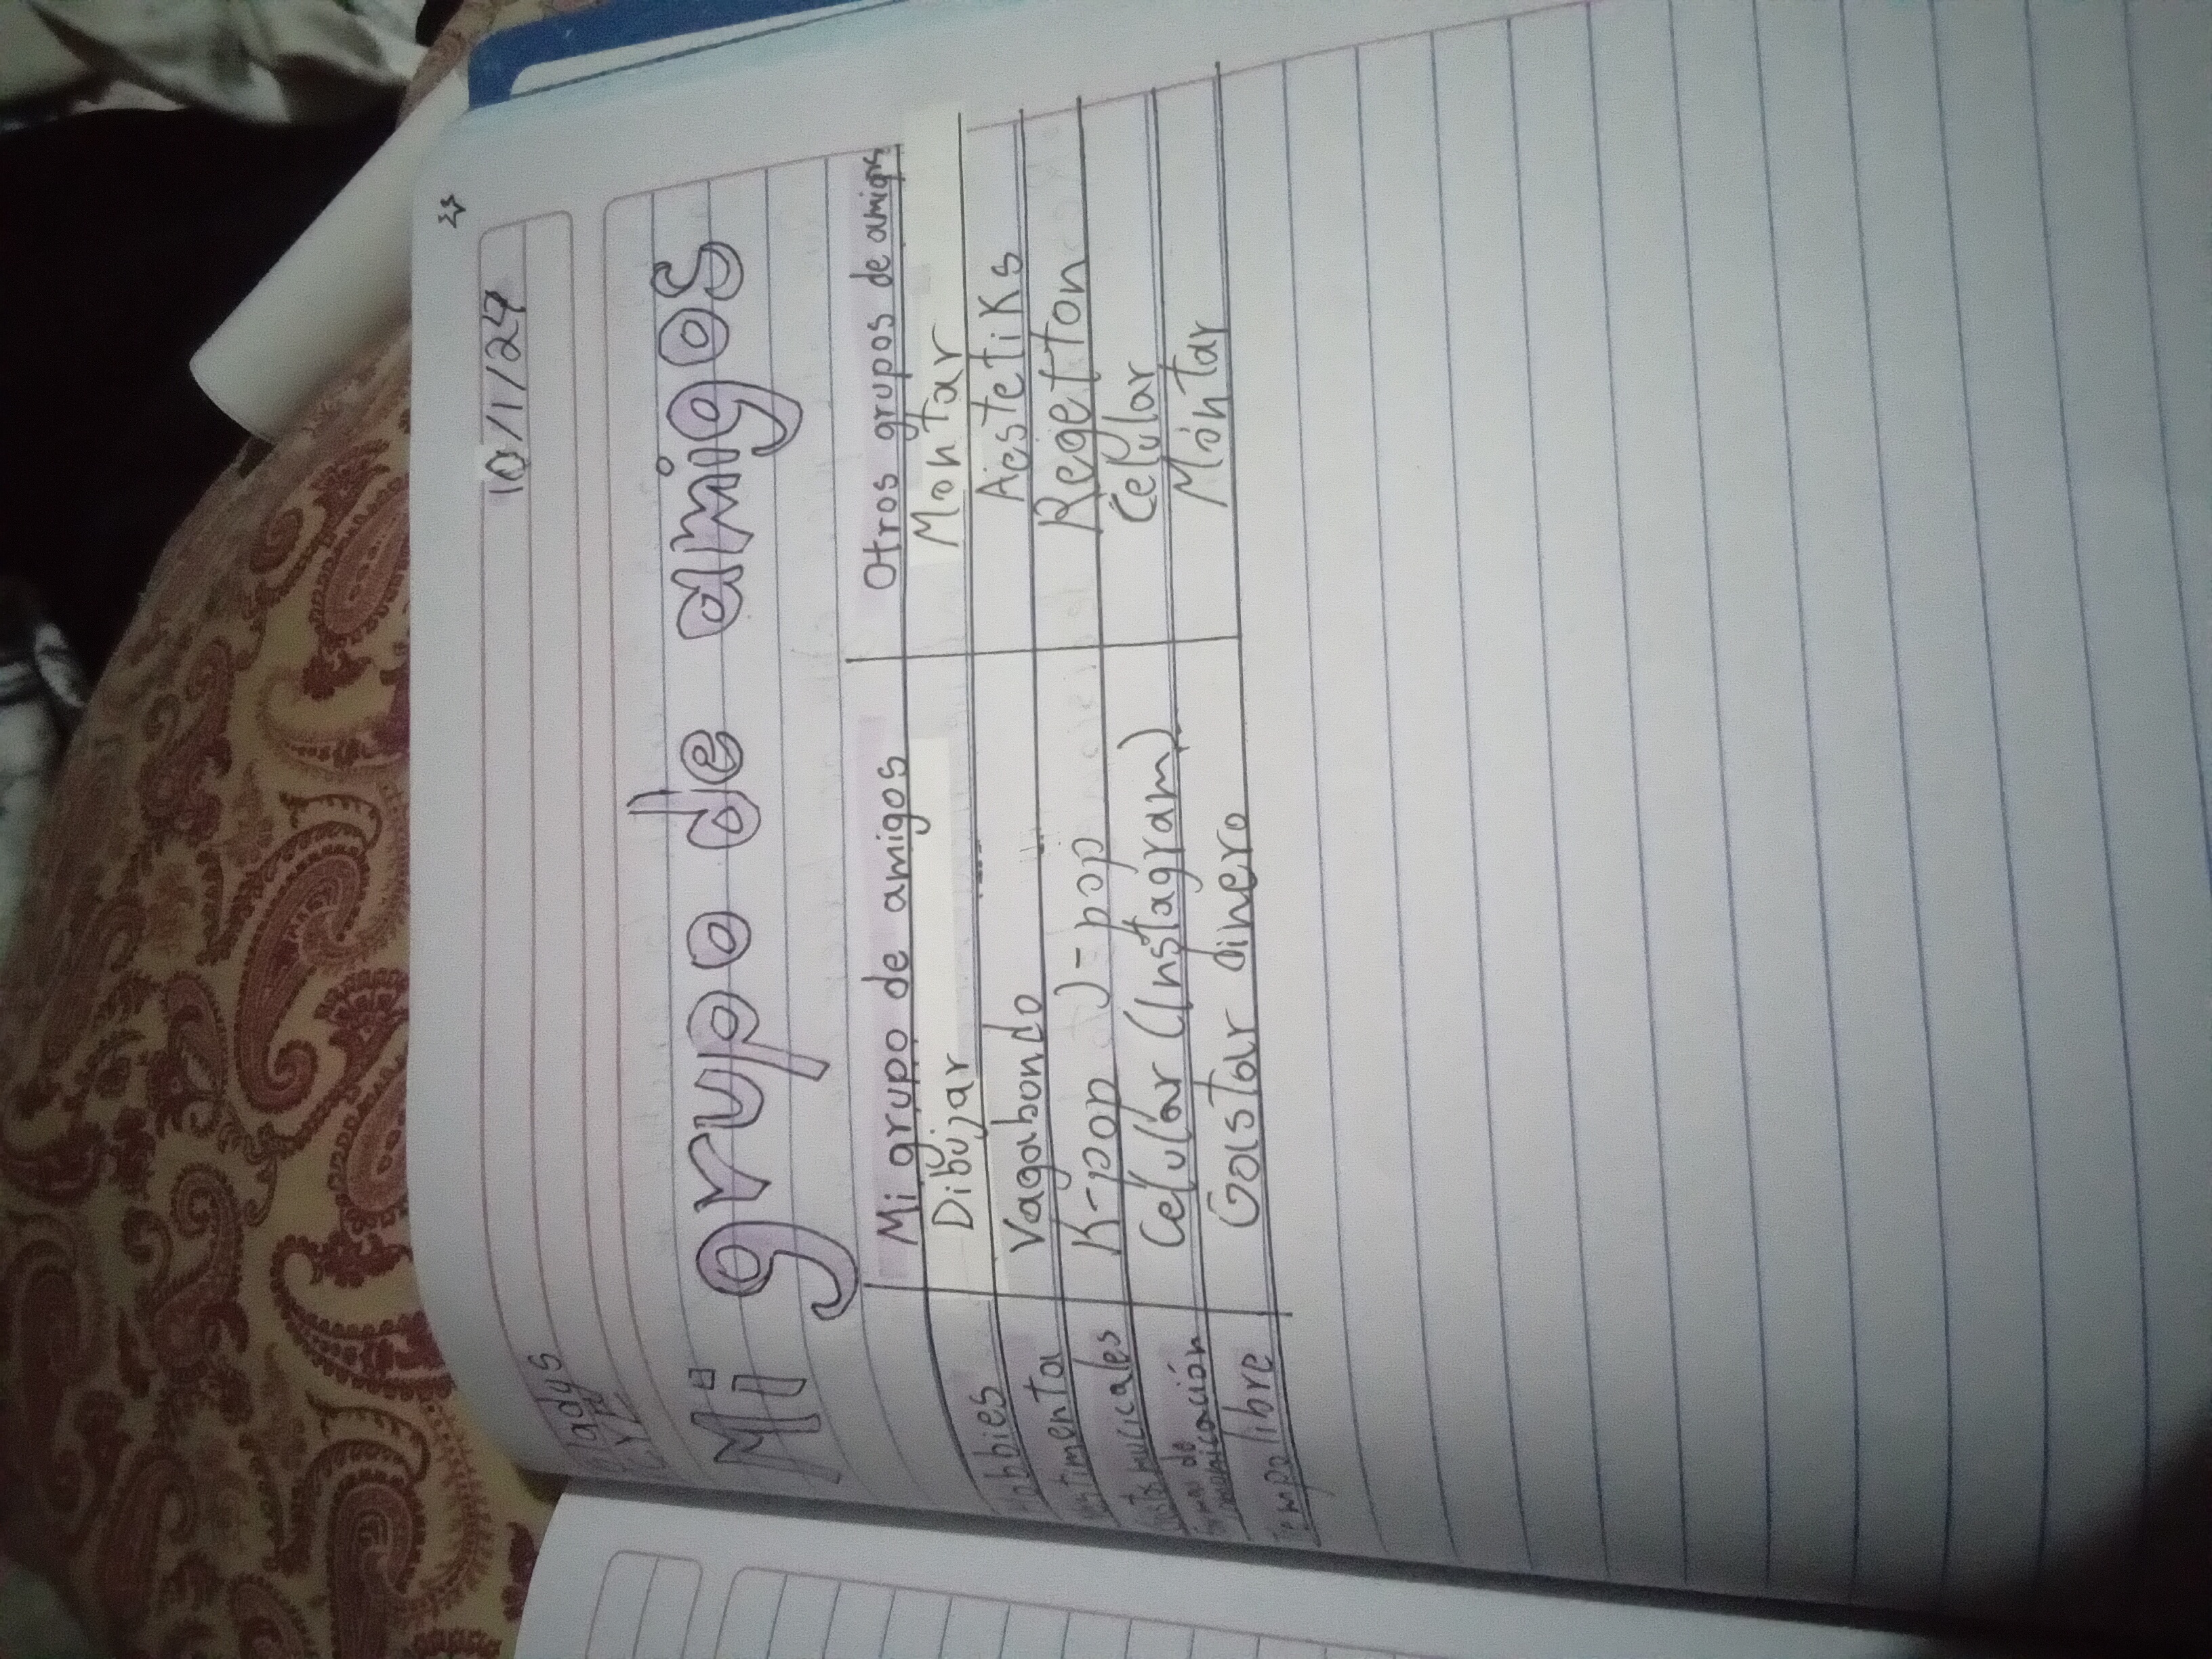 10/1/24
Gladys
Mi grupo de amigos
Mi grupo de amigos Otros grupos de amigos
Hobbies Dibujar Montar
Vestimenta Vagabondo Aestetiks
Gusts mucicales K-pop J-pop Regetton
forma de
comunicación Celular (Instagram) Celular
Tempo libre Gastar dinero Montar